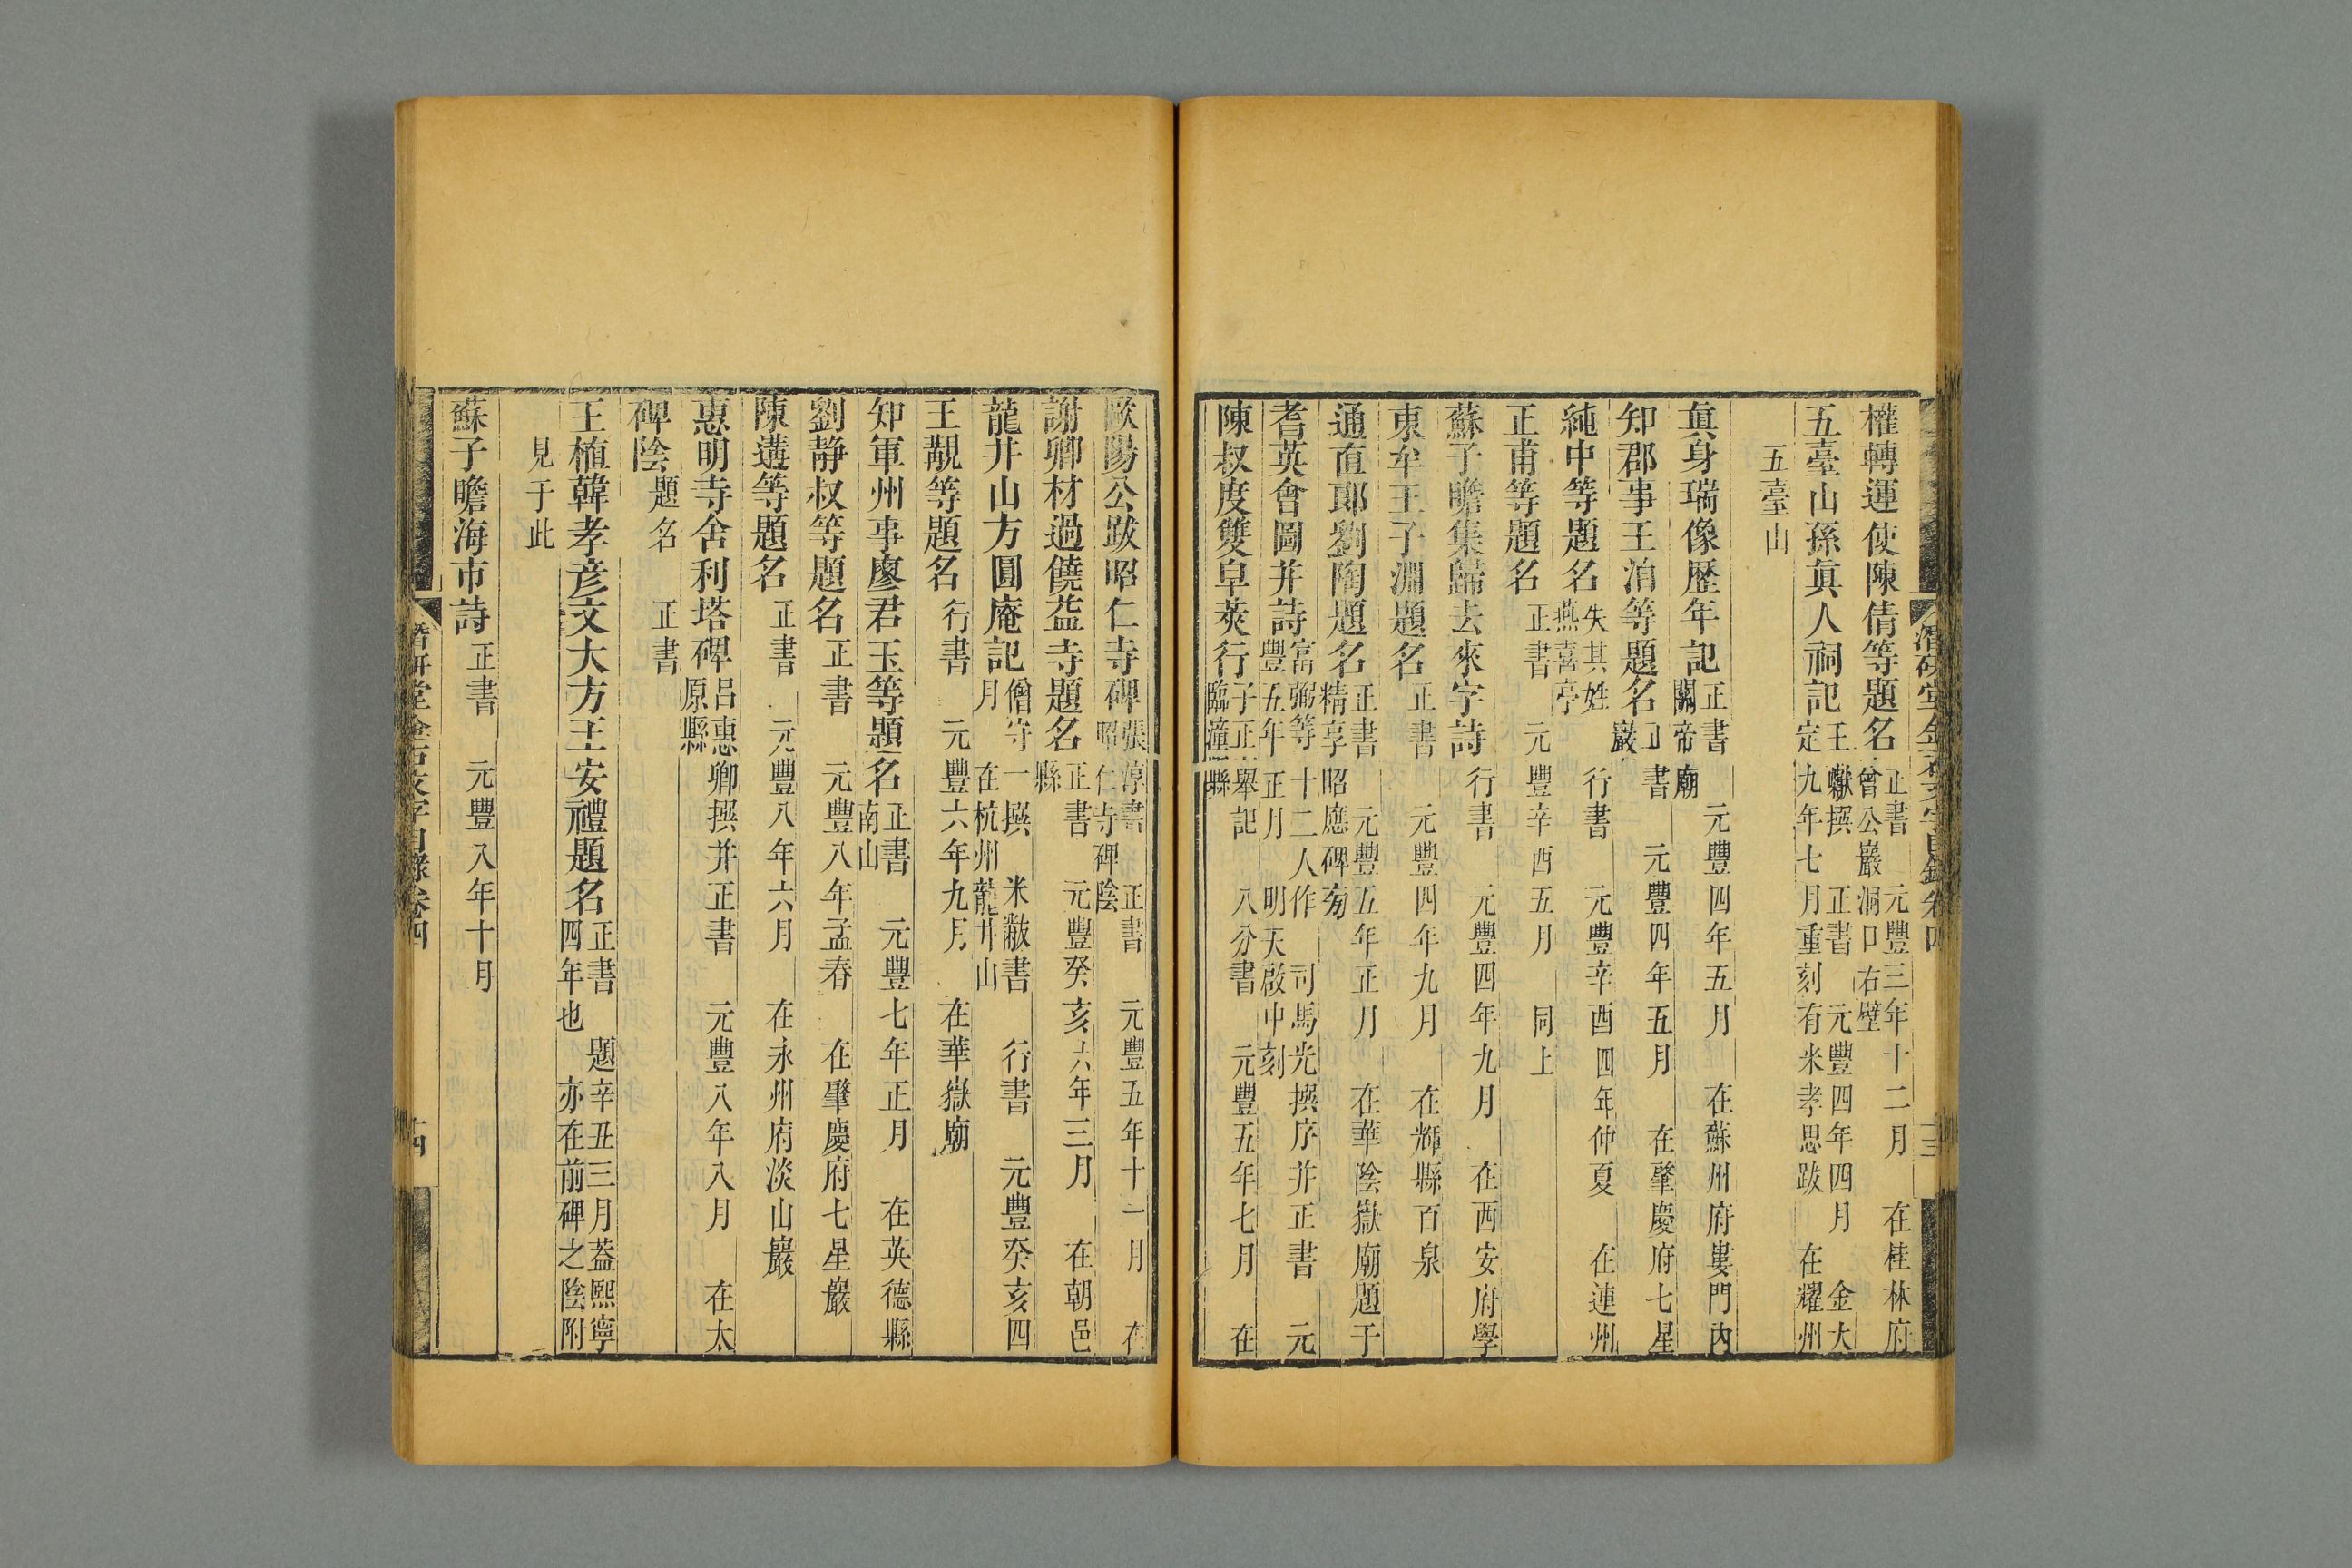 權轉運使陳倩等題名 正書 元豐三年十二月 在桂林府曾公巖洞口右壁
五臺山孫眞人祠記 王巘撰 正書 元豐四年四月 金大定九年七月重刻有米孝思跋 在耀州
五臺山
眞身瑞像歷年記 正書 元豐四年五月 在蘇州府婁門內關帝廟
知郡事王泊等題名 正書 元豐四年五月 在肇慶府七星巖
純中等題名 失其姓 行書 元豐辛酉四年仲夏 在連州燕喜亭
正甫等題名 正書 元豐辛酉五月 同上
蘇子瞻集歸去來字詩 行書 元豐四年九月 在西安府學
東牟王子淵題名 正書 元豐四年九月 在輝縣百泉
通直郎劉陶題名 正書 元豐五年正月 在華陰嶽廟題于精享昭應碑旁
耆英會圖并詩 富弼等十二人作 司馬光撰序并正書 元豐五年正月 明天啟中刻
陳叔度雙皁莢行 子正舉記 八分書 元豐五年七月 在臨潼縣
潛硏堂金石文字目錄卷四 十三
歐陽公跋昭仁寺碑 張淳書 正書 元豐五年十一月 在昭仁寺碑陰
謝卿材過饒益寺題名 正書 元豐癸亥六年三月 在朝邑縣
龍井山方圓庵記 僧守一撰 米黻書 行書 元豐癸亥四月 在杭州龍井山
王覯等題名 行書 元豐六年九月 在華嶽廟
知軍州事廖君玉等題名 正書 元豐七年正月 在英德縣南山
劉靜叔等題名 正書 元豐八年孟春 在肇慶府七星巖
陳遘等題名 正書 元豐八年六月 在永州府淡山巖
惠明寺舍利塔碑 呂惠卿撰并正書 元豐八年八月 在太原縣
碑陰題名 正書
王植韓孝彦文大方王安禮題名 正書 題辛丑三月葢熙寧四年也 亦在前碑之陰附
見于此
蘇子瞻海市詩 正書 元豐八年十月
潛硏堂金石文字目錄卷四 十四